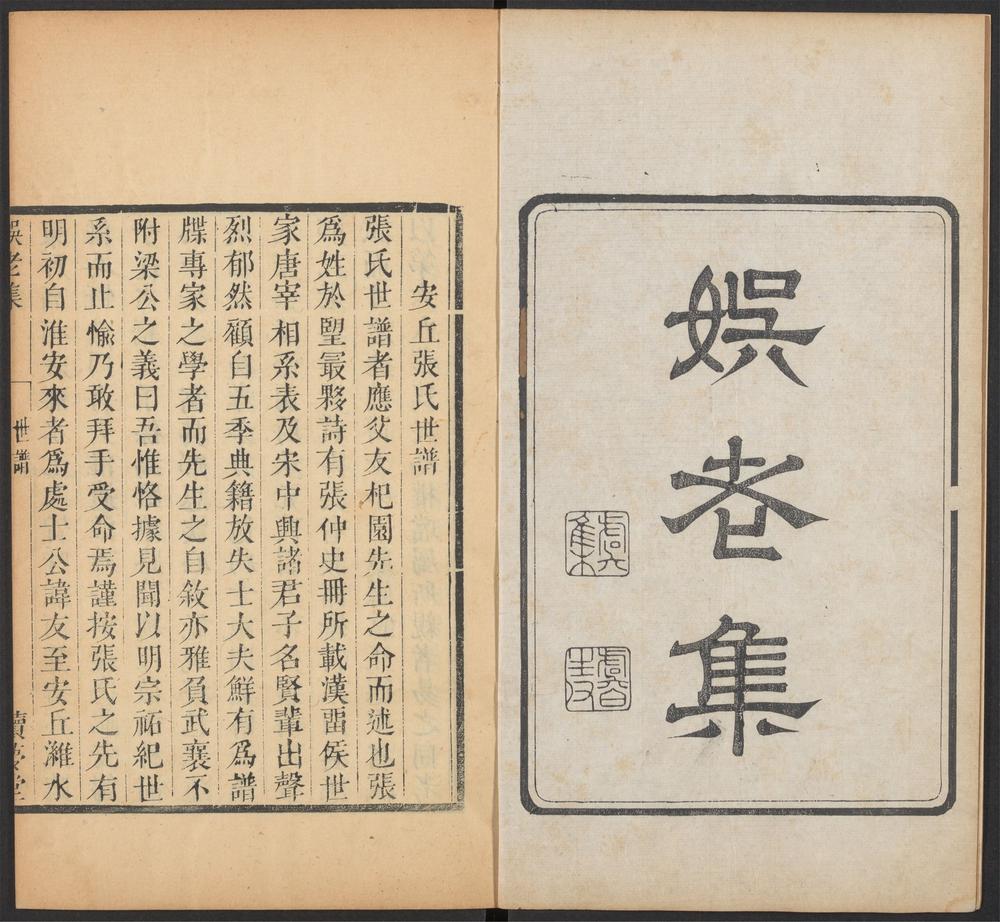 娛老集
安丘張氏世譜
張氏世譜者應父友杞園先生之命而述也張
爲姓於望最夥詩有張仲史冊所載漢畱侯世
家唐宰相系表及宋中興諸君子名賢輩出聲
烈郁然顧自五季典籍放失士大夫鮮有爲譜
牒專家之學者而先生之自敘亦雅負武襄不
附梁公之義曰吾惟恪據見聞以明宗祐紀世
系而止愉乃敢拜手受命焉謹按張氏之先有
明初自淮安來者爲處士公諱友至安丘濰水
娛老集 世譜